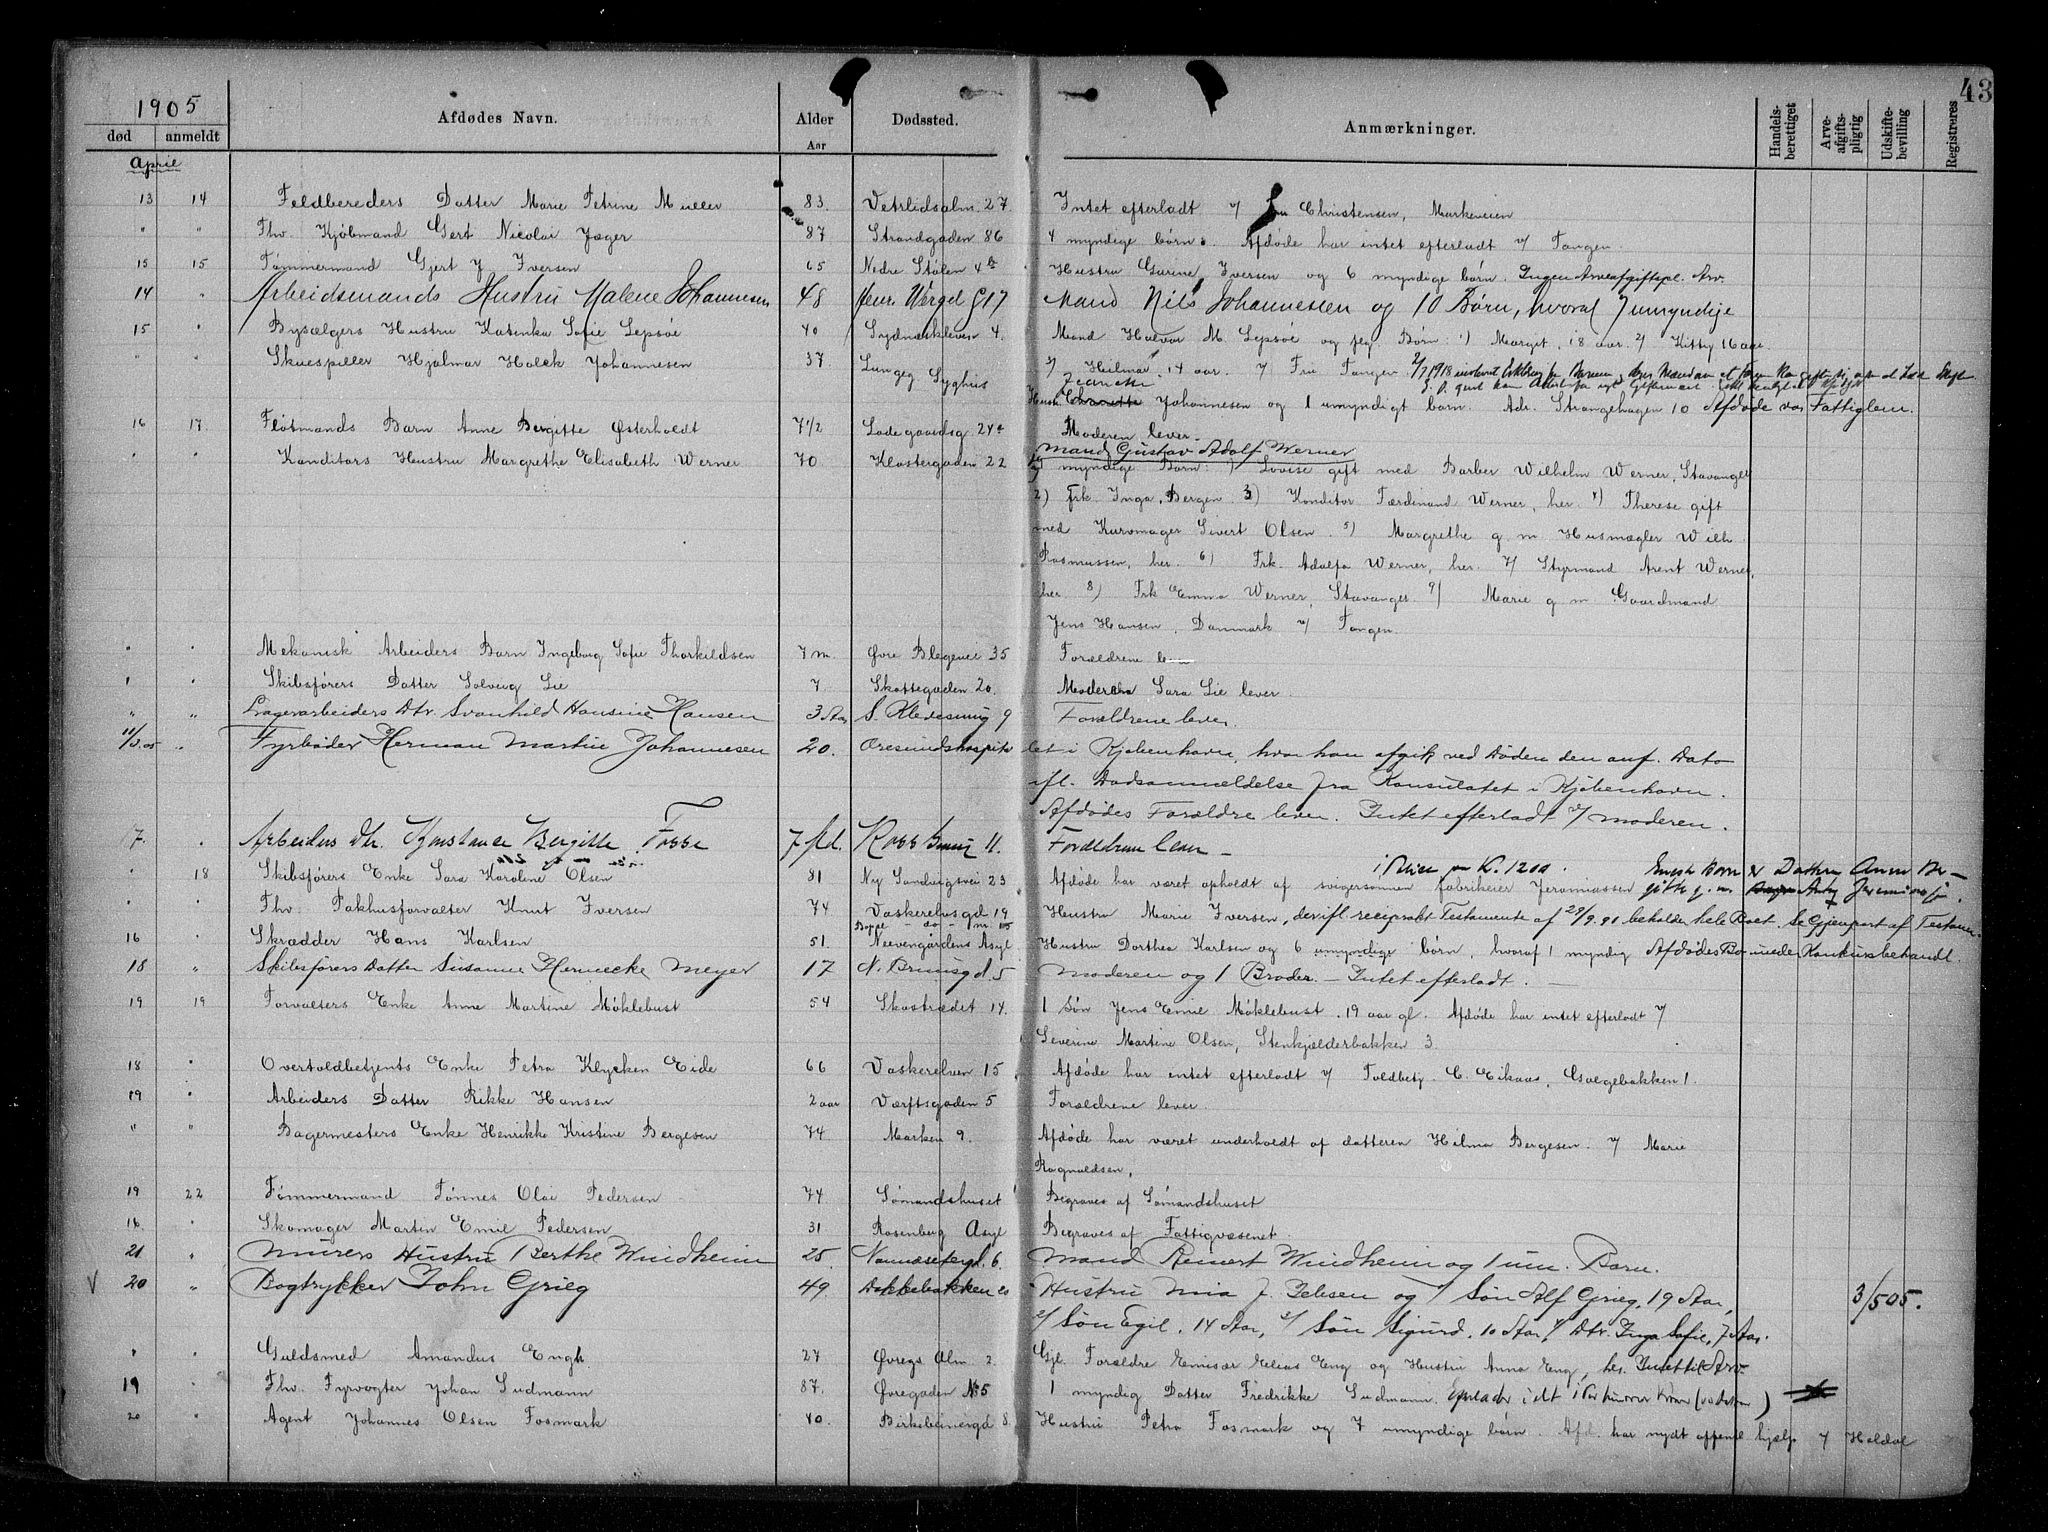 43
1905
død anmeldt Afdødes Navn. Alder Aar Dødssted. Anmærkninger. Handelsberettiget Arveafgiftspligtig Udskiftebevilling Registreres
April
13 14 Feldbereders Datter Marie Petrine Müller 83 Vetrlidsalm. 27. Intet efterladt v/ Christensen, Markeveien
" " Fhv. Kjøbmand Gert Nicolai Jæger 87 Strandgaden 86 4 myndige børn. Afdøde har intet efterladt v/ Tangen.
15 15 Tømmermand Gjert J Iversen 65 Nedre Stølen 4b Hustru Gurine Iversen og 6 myndige børn. Ingen Arveafgiftspl. Arv.
14 " Arbeidsmands Hustru Malene Johannesen 48 Henr. Wergel. g 17 Mand Nils Johannessen og 10 Børn, hvoraf 7 umyndige
15 " Bysælgers Hustru Katinka Sofie Lepsøe 40 Sydneskleven 4. Mand Halvor M. Lepsøe og flg. Børn: 1) Marget, 18 aar. 2) Kitty 16 aar
" " Skuespiller Hjalmar Holck Johannesen 37 Lungeg Syghus 3) Hilmar 14 aar. v/ Fru Tangen. 2/7 1918
Jeanette
Hustr. Johannesen og 1 umyndigt barn. Adr. Strangehagen 10 Afdøde var Fattiglem.
16 17 Fløtmands Barn Anne Bergitte Østerholdt 7 1/2 Ladegaardsg. 24a Moderen lever
" " Konditors Hustru Margrethe Elisabeth Werner 70 Klostergaden 22 Mand Gustav Adolf Werner
9 myndige Børn: 1) Lovise gift med Barber Wilhelm Werner, Stavanger
2) Frk. Inga, Bergen. 3) Konditor Ferdinand Werner, her. 4) Therese gift
med Kurvmager Sivert Olsen. 5) Margrethe g. m Husmægler Wilh.
Rasmussen, her. 6) Frk. Adolfa Werner, her. 7) Styrmand Arent Werner,
her. 8) Frk Emma Werner, Stavanger. 9) Marie g m Gaardmand
Jens Hansen, Danmark v/ Tangen.
" " Mekanisk Arbeiders Barn Ingeborg Sofie Thorkildsen 7 m. Øvre Blegevei 35 Forældrene lever
" " Skibsførers Datter Solveig Lie 7 Skottegaden 20. Moderen Sara Lie lever.
" " Lagerarbeiders Dtr. Svanhild Hansine Hansen 3 Aar S. Kledesmug 9 Forældrene lever.
11/3.05 " Fyrbøder Herman Martin Johannesen 20. Øresundshospitalet i Kjøbenhavn, hvor han afgik ved Døden den anf. Dato
ifl. Dødsanmeldelse fra Konsulatet i Kjøbenhavn.
Afdødes Forældre lever. Intet efterladt v/ moderen.
7. " Arbeiders Dtr. Konstance Bergitte Fosse 7 Md. Ross Smug 11. Forældrene lever
" 18 Skibsførers Enke Sara Karoline Olsen 81 Ny Sandvigsvei 23 Afdøde har været opholdt af svigersønnen fabrikeier Jeremiassen Eneste Barn er Datteren Anna Bergitte g. m. Jeremiassen.
" " Fhv. Pakhusforvalter Knut Iversen 74 Vaskerelvsgd 19 Hustru Marie Iversen, der ifl. reciprokt Testamente af 29/9.91 beholder hele Boet. Se Gjenpart af Testam.
16 " Skrædder Hans Karlsen 51. Neevengårdens Asyl Hustru Dorthea Karlsen og 6 umyndige børn, hvoraf 1 myndig Afdødes Bo under Konkursbehandl.
18 " Skibsførers Datter Susanne Hernecke Meyer 17 N. Brunsgd. 5 Moderen og 1 Broder. — Intet efterladt. —
19 19 Forvalters Enke Anne Martine Møklebust 54 Skostrædet 14. 1 Søn Jens Emil Møklebust, 19 aar gl. Afdøde har intet efterladt v/
Severine Martine Olsen, Stenkjelderbakken 3.
18 " Overtoldbetjents Enke Petra Klycken Eide 66 Vaskerelven 15 Afdøde har intet efterladt v/ Toldbetj. C. Eikaas, Galgebakken 1.
19 " Arbeiders Datter Rikke Hansen 2 aar Værftsgaden 5 Forældrene lever.
" " Bagermesters Enke Henrikke Kristine Bergesen 74 Marken 9. Afdøde har været underholdt af datteren Hilma Bergesen. v/ Marie
Ragnvaldsen,
19 22 Tømmermand Tønnes Olai Pedersen 74 Sømandshuset Begraves af Sømandshuset
16 " Skomager Martin Emil Pedersen 31 Rosenberg Asyl Begraves af Fattigvæsenet.
21 " Murers Hustru Berthe Windheim 25. 6. Mand Reinert Windheim og 1 um. Barn.
V 20 " Bogtrykker John Grieg 49 Dokkebakken Hustru Mia J. og 1/ Søn Alf Grieg, 19 Aar, 3/5 05.
2/ Søn Egil, 14 Aar, 3/ Søn Sigurd, 10 Aar, 4/ Dtr. Inga Sofie, 7 Aar.
" " Guldsmed Amandus Engh. 27 Øvregs Alm 2. Gjl. Forældre Emisær Elias Eng og Hustru Anna Eng, her. Intet til Arv.
19 " Fhv. Fyrvogter Johan Sudmann 87. Øvregaden No 5 1 myndig Datter Fredrikke Sudmann.
20 " Agent Johannes Olsen Fosmark 40. Birkebeinergd 8. Hustru Petra Fosmark og 7 umyndige børn. Afd. har nydt offentl hjælp v/ Haldal